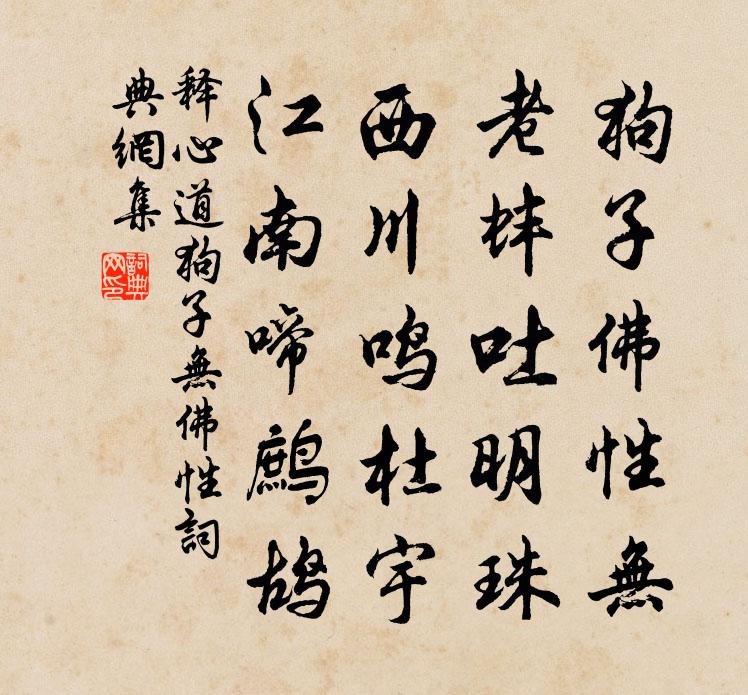 狗子佛性無
老蚌吐明珠
西川鸣杜宇
江南啼鷓鸪
释心道狗子無佛性詞
典網集
詞典
网印